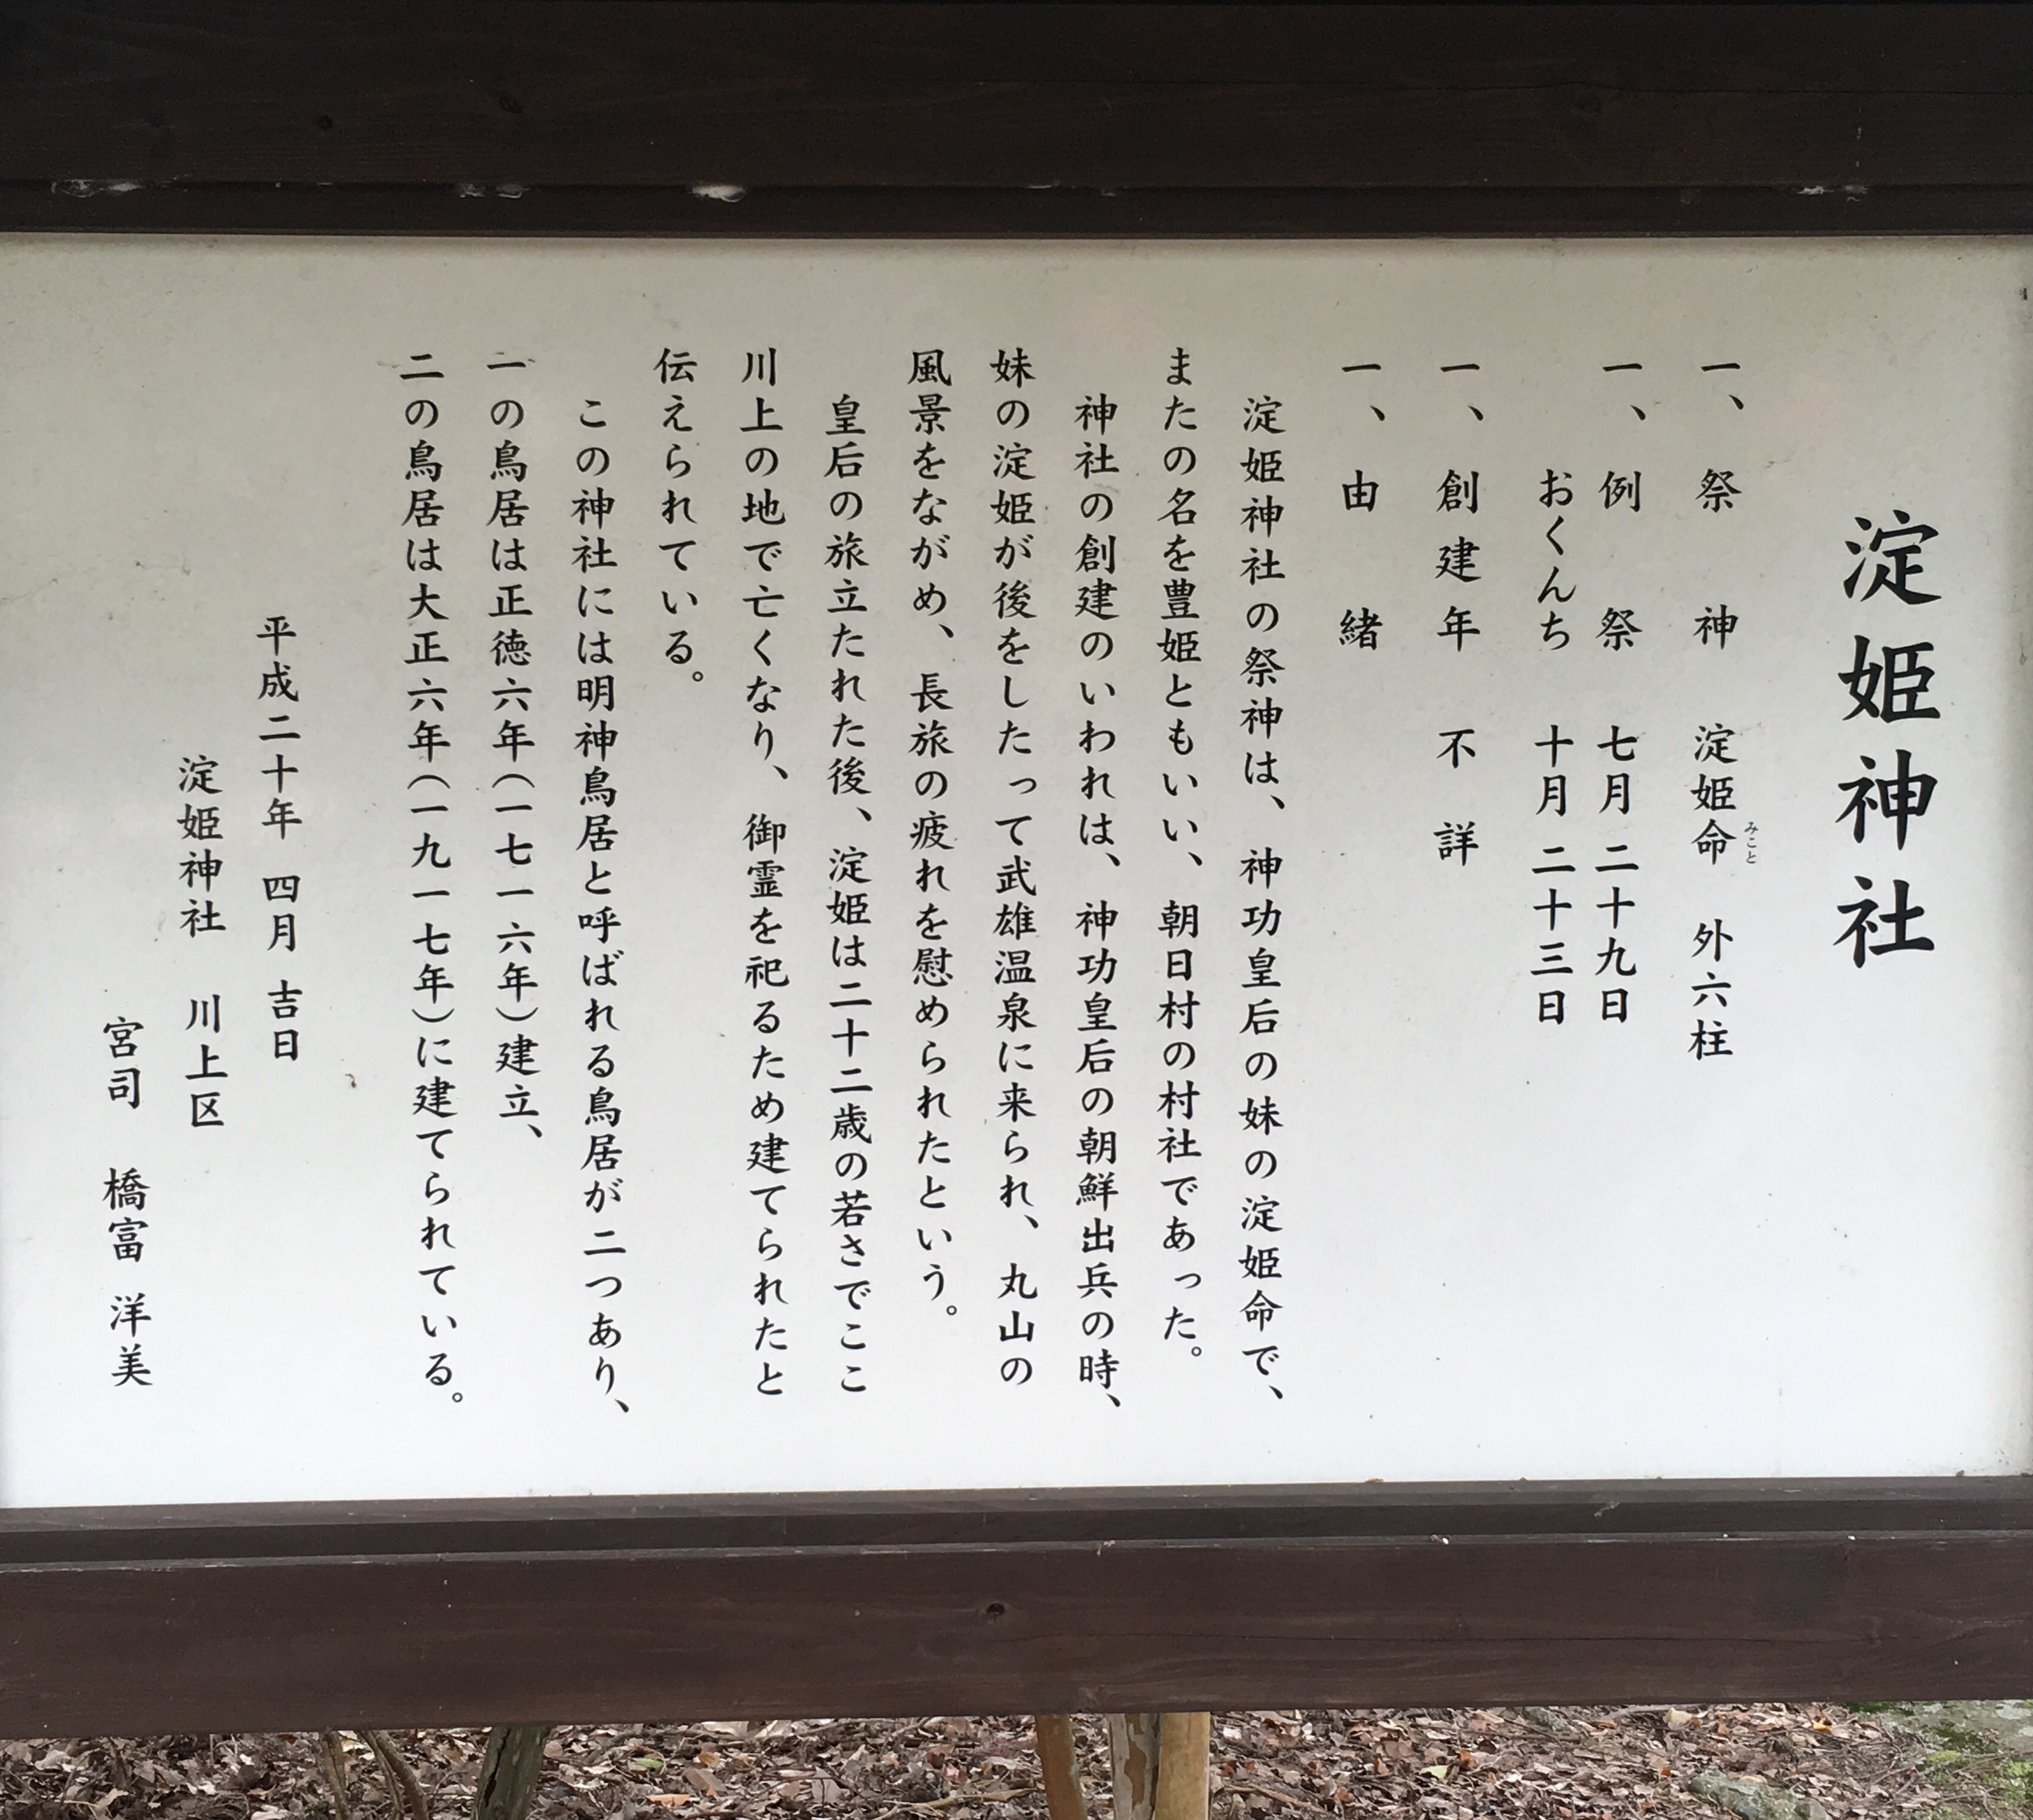 淀姫神社
一、祭神 淀姫命 外六柱
みこと
一、例祭 七月二十九日
おくんち 十月二十三日
一、創建年 不詳
一、由緒
淀姫神社の祭神は、神功皇后の妹の淀姫命で、
またの名を豊姫ともいい、朝日村の村社であった。
神社の創建のいわれは、神功皇后の朝鮮出兵の時、
妹の淀姫が後をしたって武雄温泉に来られ、丸山の
風景をながめ、長旅の疲れを慰められたという。
皇后の旅立たれた後、淀姫は二十二歳の若さでここ
川上の地で亡くなり、御霊を祀るため建てられたと
伝えられている。
この神社には明神鳥居と呼ばれる鳥居が二つあり、
一の鳥居は正徳六年(一七一六年)建立、
二の鳥居は大正六年(一九一七年)に建てられている。
平成二十年 四月 吉日
淀姫神社 川上区
宮司 橋富 洋美